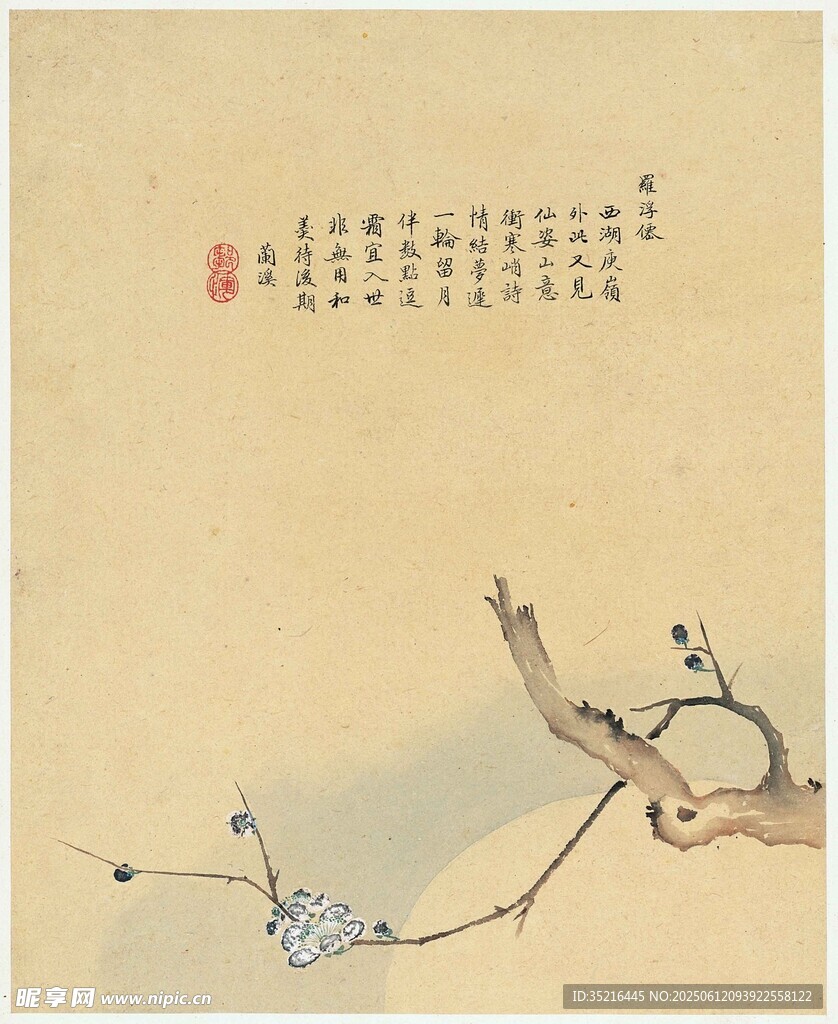 羅浮僊
西湖庾嶺
外此又見
仙姿山意
衝寒峭詩
情結夢遲
一輪留月
伴数點逗
霜宜入世
非無用和
羹待後期
蘭溪
昵享网 www.nipic.cn
ID:35216445 NO:20250612093922558122